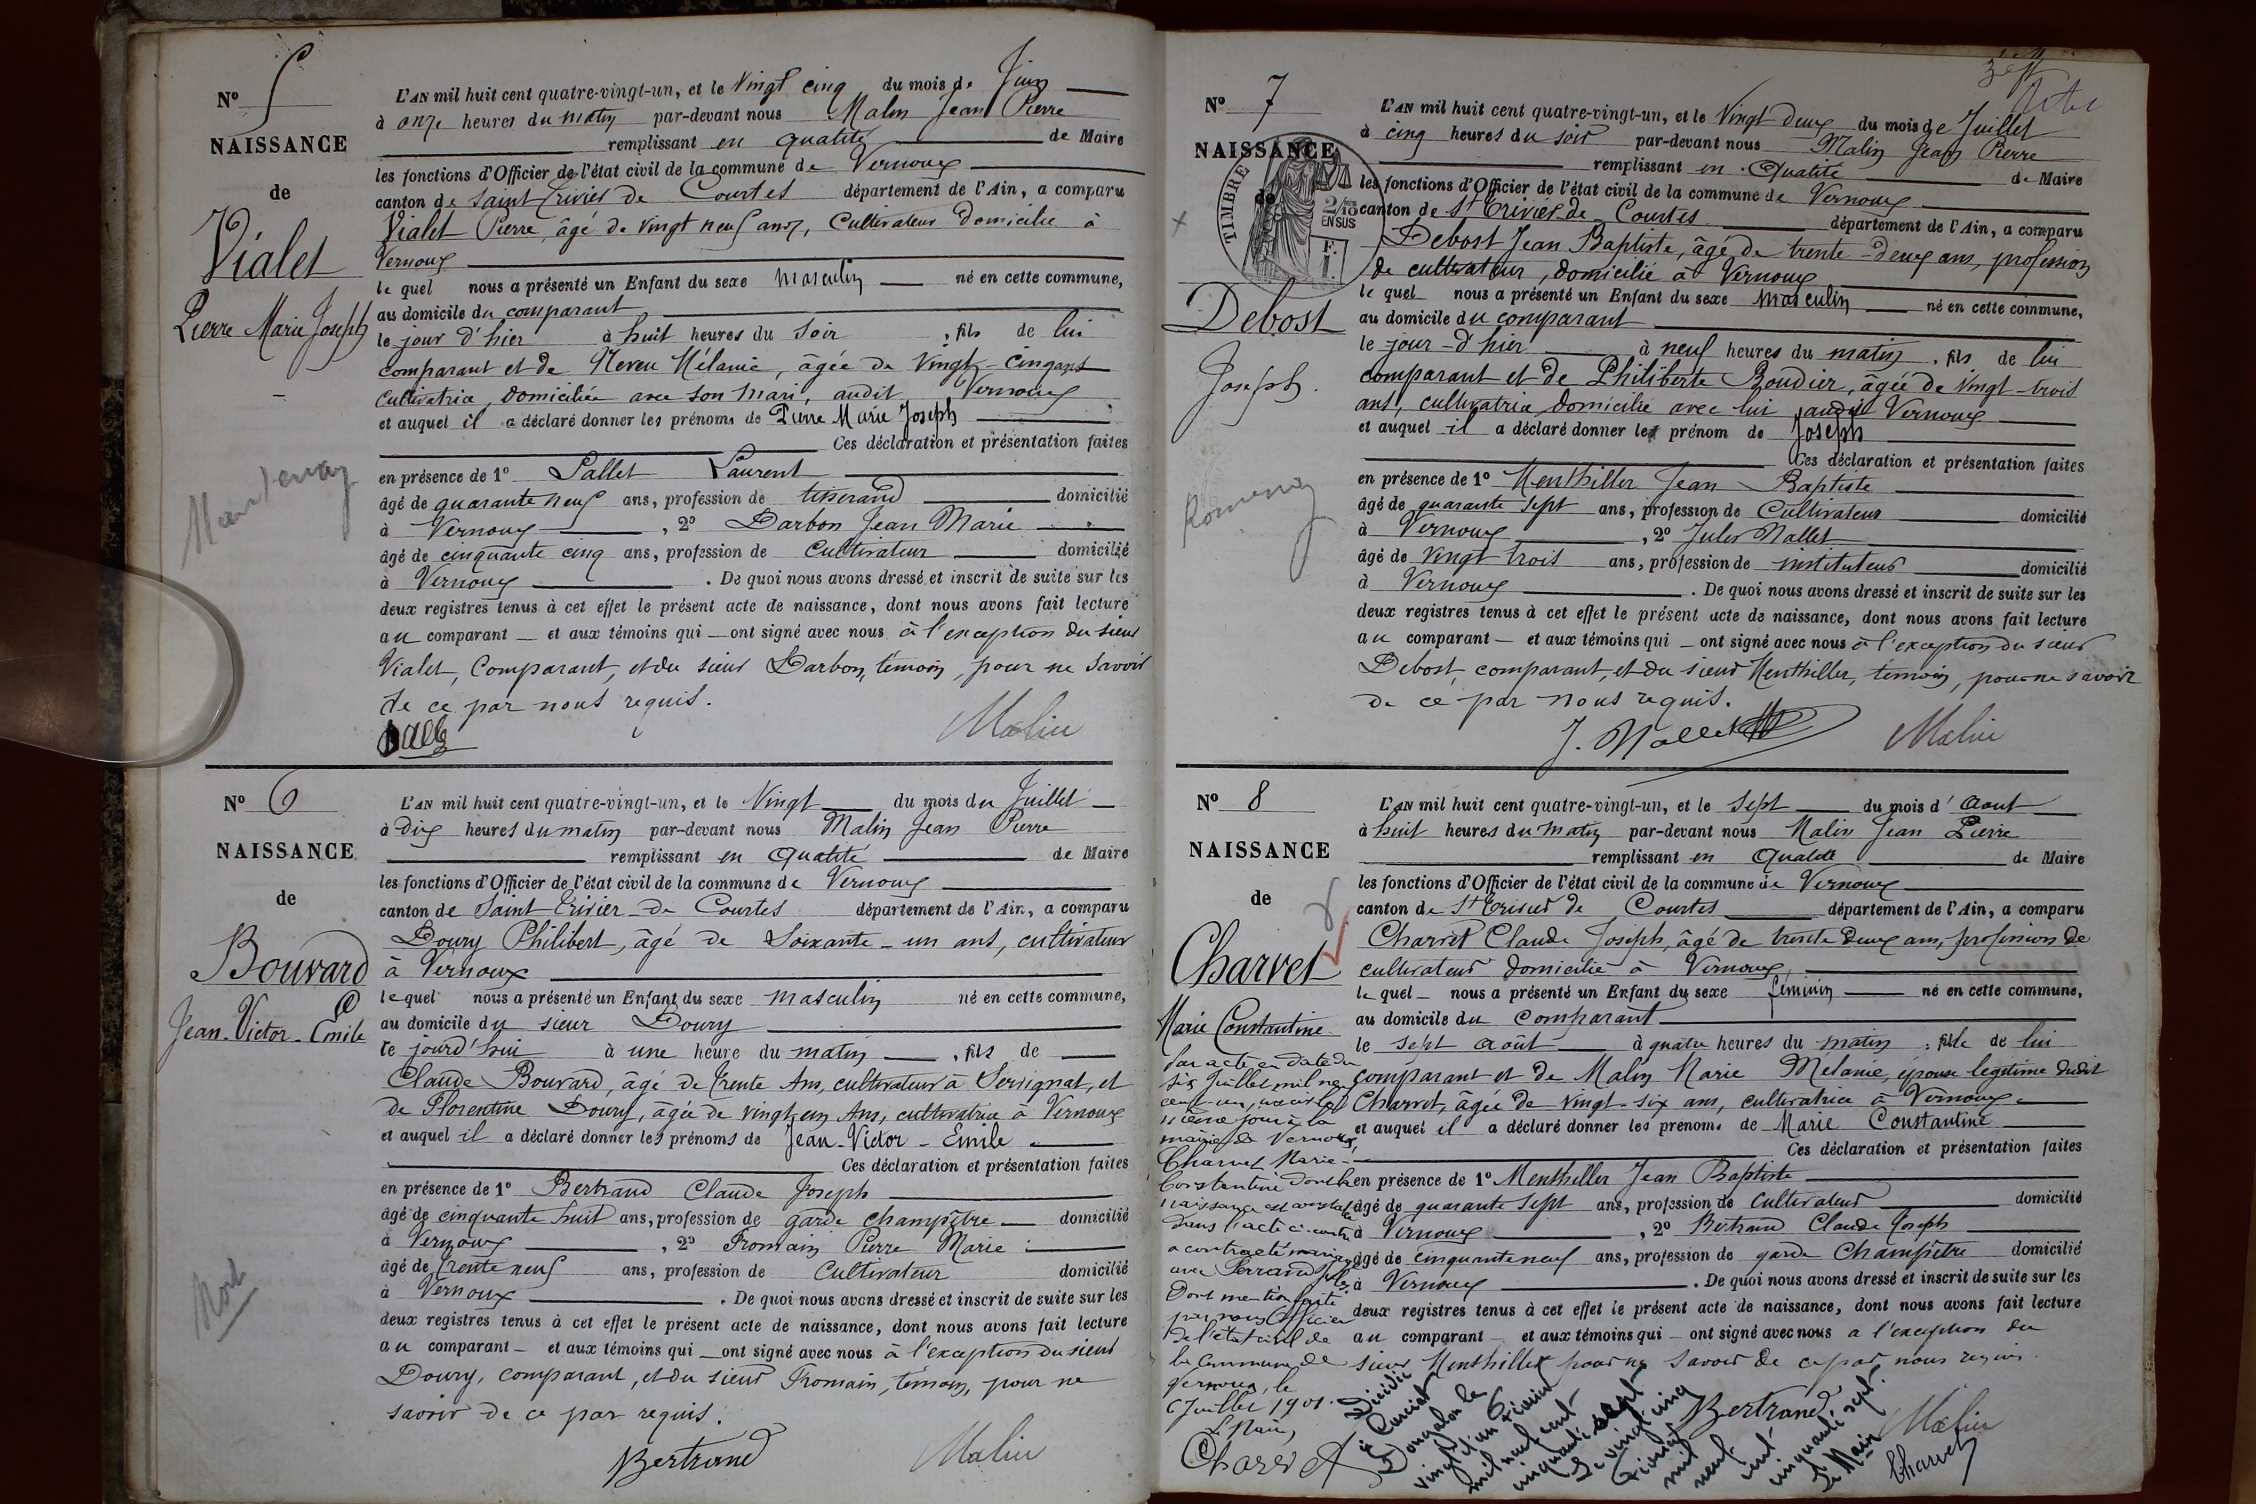 N° 5
NAISSANCE
de
Vialet
Pierre Marie Joseph
Mantenay
L'AN mil huit cent quatre-vingt-un, et le Vingt cinq du mois de Juin
à onze heures du matin par-devant nous Malin Jean Pierre
remplissant en qualité de Maire
les fonctions d'Officier de l'état civil de la commune de Vernoux
canton de Saint Trivier de Courtes département de l'Ain, a comparu
Vialet Pierre, âgé de vingt neuf ans, Cultivateur domicilié à
Vernoux
le quel nous a présenté un Enfant du sexe masculin né en cette commune,
au domicile du comparant
le jour d'hier à huit heures du soir, fils de lui
comparant et de Neveu Mélanie, âgée de Vingt-cinq ans
cultivatrice, domiciliée avec son mari, audit Vernoux
et auquel il a déclaré donner les prénoms de Pierre Marie Joseph
Ces déclaration et présentation faites
en présence de 1° Pallet Laurent
âgé de quarante neuf ans, profession de tisserand domicilié
à Vernoux, 2° Darbon Jean Marie
âgé de cinquante cinq ans, profession de Cultivateur domicilié
à Vernoux. De quoi nous avons dressé et inscrit de suite sur les
deux registres tenus à cet effet le présent acte de naissance, dont nous avons fait lecture
au comparant et aux témoins qui ont signé avec nous à l'exception du sieur
Vialet, Comparant, et du sieur Darbon, témoin, pour ne savoir
de ce par nous requis.
Malin
N° 6
NAISSANCE
de
Bouvard
Jean-Victor-Emile
Mort
L'AN mil huit cent quatre-vingt-un, et le Vingt du mois du Juillet
à dix heures du matin par-devant nous Malin Jean Pierre
remplissant en qualité de Maire
les fonctions d'Officier de l'état civil de la commune de Vernoux
canton de Saint Trivier de Courtes département de l'Ain, a comparu
Doury Philibert, âgé de Soixante-un ans, cultivateur
à Vernoux
le quel nous a présenté un Enfant du sexe masculin né en cette commune,
au domicile du sieur Doury
le jourd'hui à une heure du matin, fils de
Claude Bouvard, âgé de trente Ans, cultivateur à Servignat, et
de Florentine Doury, âgée de vingt un Ans, cultivatrice à Vernoux
et auquel il a déclaré donner les prénoms de Jean-Victor-Emile
Ces déclaration et présentation faites
en présence de 1° Bertrand Claude Joseph
âgé de cinquante huit ans, profession de garde champêtre domicilié
à Vernoux, 2° Fromain Pierre Marie
âgé de trente neuf ans, profession de Cultivateur domicilié
à Vernoux. De quoi nous avons dressé et inscrit de suite sur les
deux registres tenus à cet effet le présent acte de naissance, dont nous avons fait lecture
au comparant et aux témoins qui ont signé avec nous à l'exception du sieur
Doury, comparant, et du sieur Fromain, témoin, pour ne
savoir de ce par requis.
Bertrand Malin
N° 7
NAISSANCE
de
TIMBRE
2/10
EN SUS
Debost
Joseph
Romenay
L'AN mil huit cent quatre-vingt-un, et le Vingt deux du mois de Juillet
à cinq heures du soir par-devant nous Malin Jean Pierre
remplissant en Qualité de Maire
les fonctions d'Officier de l'état civil de la commune de Vernoux
canton de St Trivier de Courtes département de l'Ain, a comparu
Debost Jean Baptiste, âgé de trente-deux ans, profession
de cultivateur, domicilié à Vernoux
le quel nous a présenté un Enfant du sexe masculin né en cette commune,
au domicile du comparant
le jour-d'hier à neuf heures du matin, fils de lui
comparant et de Philiberte Boudier, âgée de vingt-trois
ans, cultivatrice domicilié avec lui audit Vernoux
et auquel il a déclaré donner les prénom de Joseph
Ces déclaration et présentation faites
en présence de 1° Menthiller Jean Baptiste
âgé de quarante sept ans, profession de Cultivateur domicilié
à Vernoux, 2° Jules Mallet
âgé de vingt trois ans, profession de instituteur domicilié
à Vernoux. De quoi nous avons dressé et inscrit de suite sur les
deux registres tenus à cet effet le présent acte de naissance, dont nous avons fait lecture
au comparant et aux témoins qui ont signé avec nous à l'exception du sieur
Debost, comparant, et du sieur Menthiller, témoin, pour ne savoir
de ce par nous requis.
J. Mallet Malin
N° 8
NAISSANCE
de
Charvet
Marie Constantine
Par acte en date du
six Juillet mil neuf
cent un, 
même jour à la
mairie de Vernoux,
Charvet Marie-
Constantine dont la
naissance est constatée
dans l'acte ci-contre
a contracté mariage
avec Serrand
Dont mention faite
par nous Officier
de l'état civil de
la Commune de
Vernoux, le
6 Juillet 1901.
Le Maire,
Charvet
L'AN mil huit cent quatre-vingt-un, et le sept du mois d'Aout
à huit heures du matin par-devant nous Malin Jean Pierre
remplissant en Qualité de Maire
les fonctions d'Officier de l'état civil de la commune de Vernoux
canton de St Trivier de Courtes département de l'Ain, a comparu
Charvet Claude Joseph, âgé de trente deux ans, profession de
cultivateur domicilié à Vernoux
le quel nous a présenté un Enfant du sexe féminin né en cette commune,
au domicile du comparant
le sept août à quatre heures du matin, fille de lui
comparant et de Malin Marie Mélanie, épouse légitime dudit
Charvet, âgée de vingt-six ans, cultivatrice à Vernoux
et auquel il a déclaré donner les prénoms de Marie Constantine
Ces déclaration et présentation faites
en présence de 1° Menthiller Jean Baptiste
âgé de quarante sept ans, profession de cultivateur domicilié
à Vernoux, 2° Bertrand Claude Joseph
âgé de cinquante neuf ans, profession de garde Champêtre domicilié
à Vernoux. De quoi nous avons dressé et inscrit de suite sur les
deux registres tenus à cet effet le présent acte de naissance, dont nous avons fait lecture
au comparant et aux témoins qui ont signé avec nous a l'exception du
sieur Menthiller pour ne savoir de ce par nous requis.
Bertrand Malin
Charvet
Décédée
à Curciat
Dongalon le
vingt un février
mil neuf cent
cinquante sept
Le vingt cinq
février
mil
neuf
cent
cinquante sept.
Le Maire